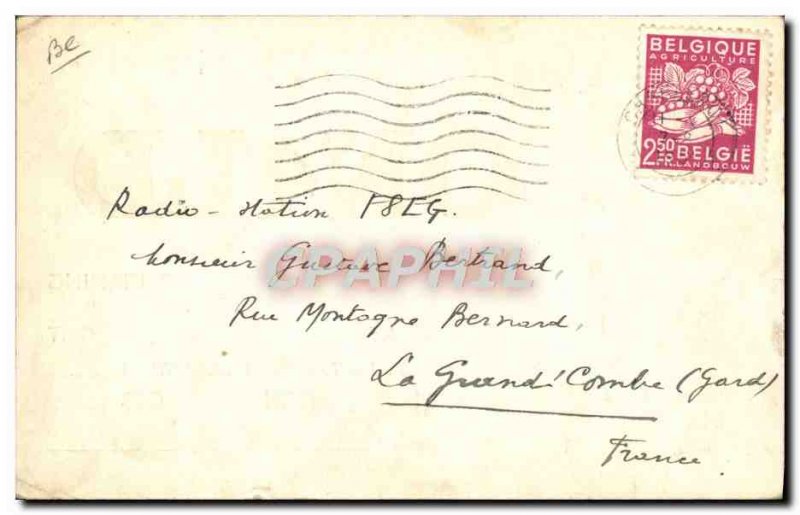 Be
BELGIQUE
AGRICULTURE
2.50
FR.
BELGIË
LANDBOUW
Radio - station F8EG.
Monsieur Gustave Bertrand,
CPAPHIL
Rue Montagne Bernard,
La Grand'Combe (Gard)
France.